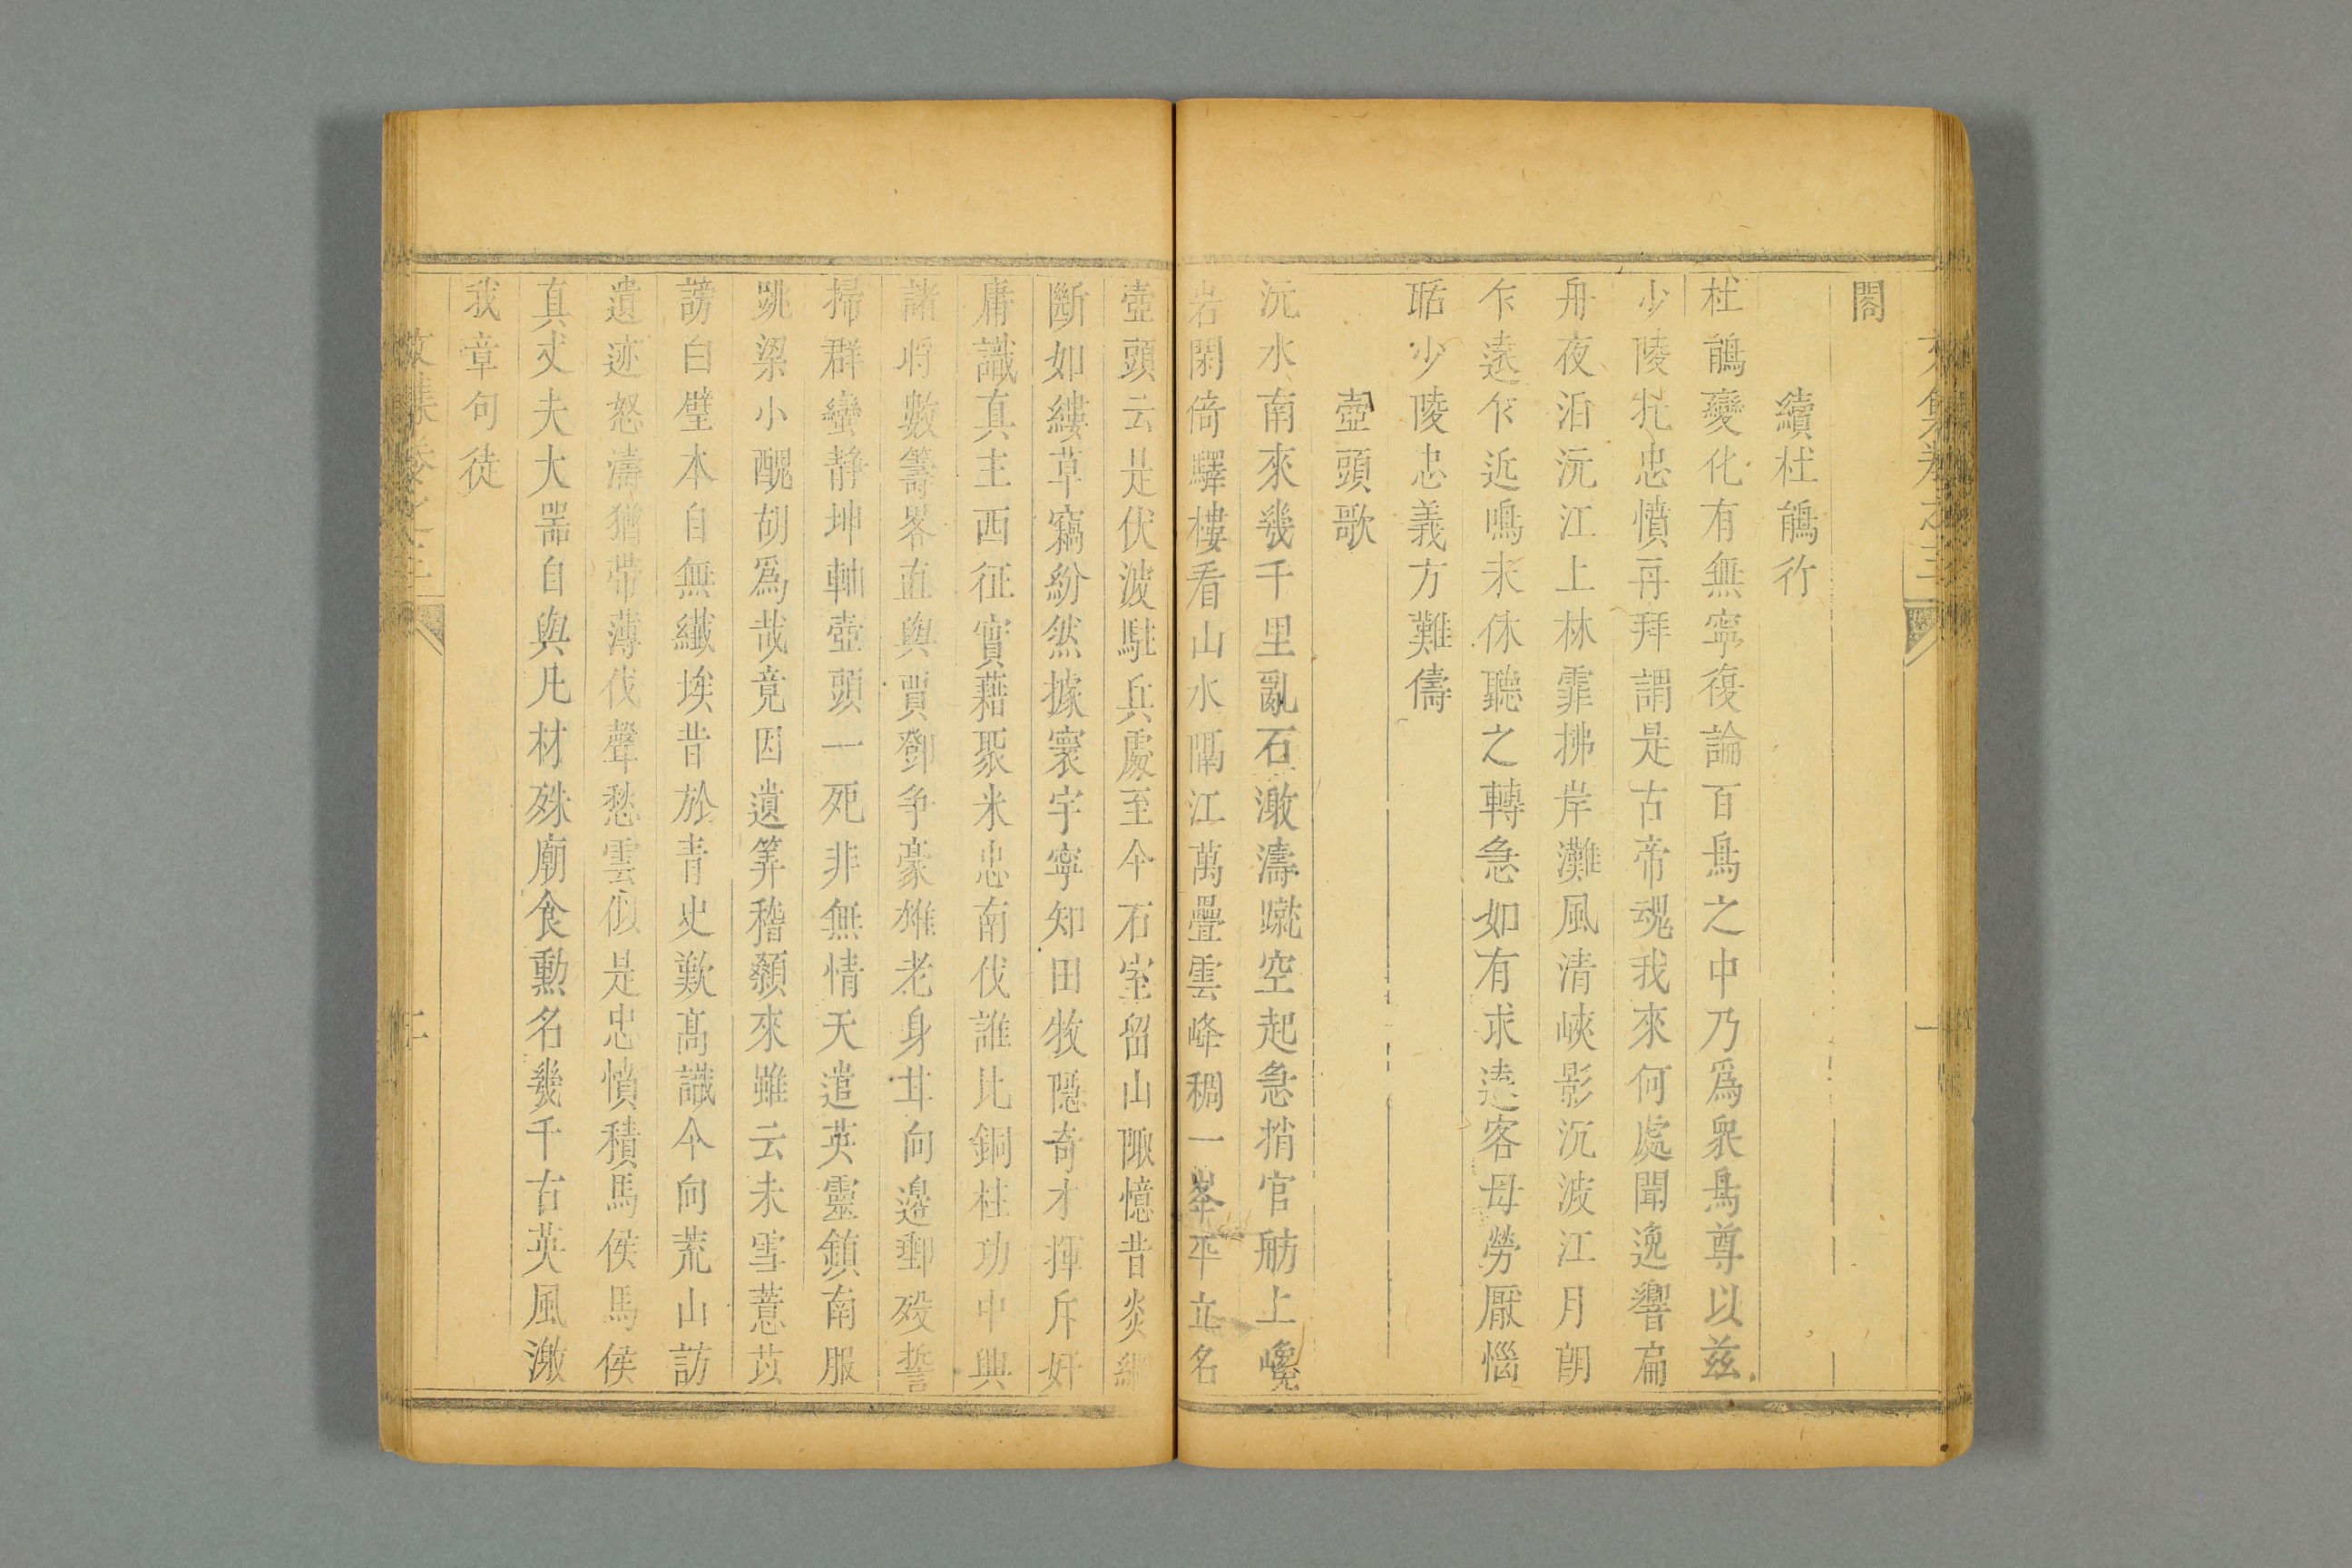 文集卷之三
一
閣
續杜鵑行
杜鵑變化有無寧復論百鳥之中乃爲衆鳥尊以兹
少陵抱忠憤再拜謂是古帝魂我來何處聞逸響扁
舟夜泊沅江上林霏拂岸灘風清峽影沉波江月朗
乍遠乍近鳴未休聽之轉急如有求遠客毋勞厭惱
聒少陵忠義方難儔
壺頭歌
沅水南來幾千里亂石激濤蹴空起急捎官舫上巉
岩閑倚驛樓看山水隔江萬疊雲峰稠一峯平立名
壺頭云是伏波駐兵處至今石室留山陬憶昔炎綱
斷如縷草竊紛然據寰宇寧知田牧隱奇才揮斥奸
庸識真主西征實藉聚米忠南伐誰比銅柱功中興
諸將數籌畧直與賈鄧争豪雄老身甘向邊郵殁誓
掃群蠻静坤軸壺頭一死非無情天遣英靈鎮南服
跳梁小醜胡爲哉竟因遺筭稽顙來雖云未雪薏苡
謗白璧本自無纖埃昔於青史歎高識今向荒山訪
遺迹怒濤猶帶薄伐聲愁雲似是忠憤積馬侯馬侯
真丈夫大噐自與凡材殊廟食勳名幾千古英風激
我章句徒
文集卷之三
二